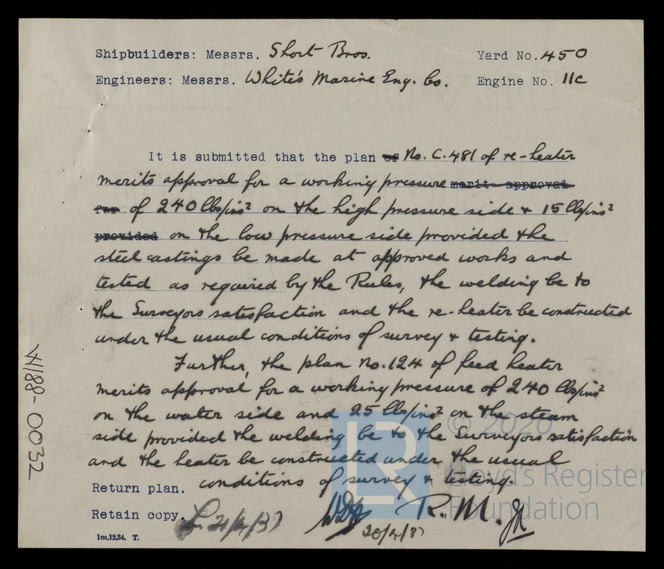 Shipbuilders: Messrs. Short Bros. Yard No. 450
Engineers: Messrs. White's Marine Eng. Co. Engine No. 11c
It is submitted that the plan of No. C.481 of re-heater
merits approval for a working pressure merit approval
for of 240 lbs/ins² on the high pressure side & 15 lbs/ins²
provided on the low pressure side provided the
steel castings be made at approved works and
tested as required by the Rules, the welding be to
the Surveyors satisfaction and the re-heater be constructed
under the usual conditions of survey & testing.
Further, the plan No. 124 of feed heater
merits approval for a working pressure of 240 lbs/ins²
on the water side and 25 lbs/ins² on the steam
side provided the welding be to the Surveyors satisfaction
and the heater be constructed under the usual
conditions of survey & testing.
Return plan.
Retain copy. 21/4/37
20/4/37 R.M.
1m,12,34. T.
4188-0032
© 2020
Lloyd's Register
Foundation
LR